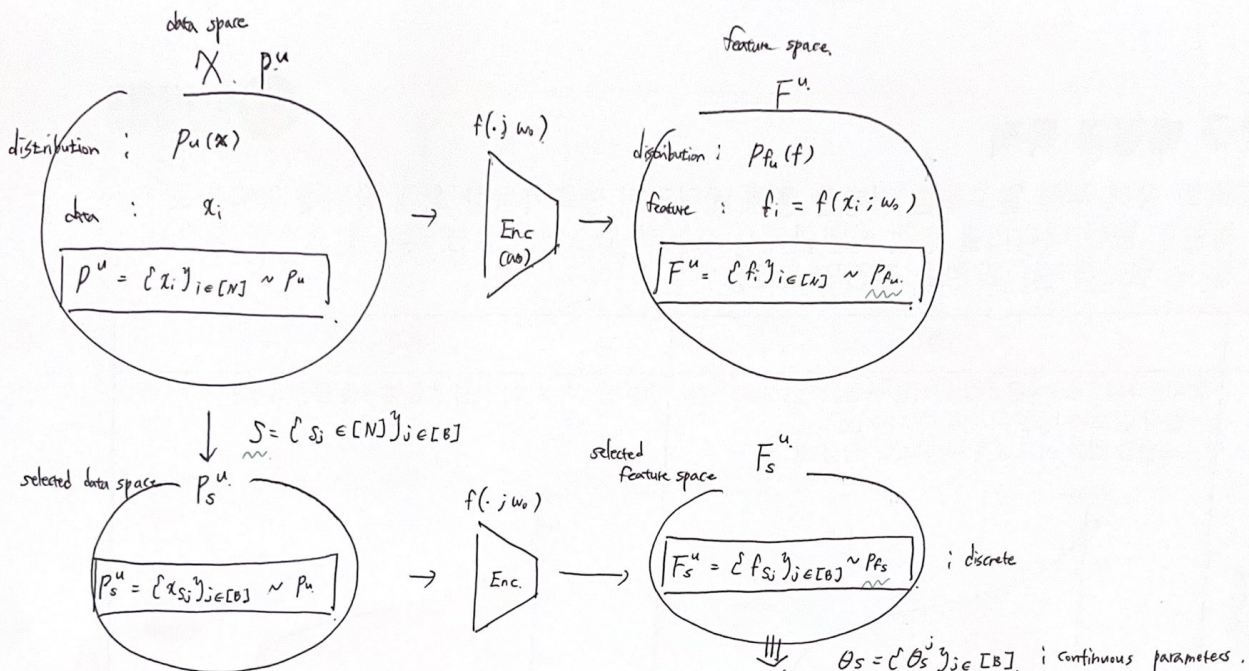 data space
X. P^u
distribution : p_u(x)
data : x_i
P^u = {x_i}_{i∈[N]} ~ p_u
f(·; w_0)
Enc
(w_0)
feature space.
F^u.
distribution : p_{f_u}(f)
feature : f_i = f(x_i; w_0)
F^u = {f_i}_{i∈[N]} ~ p_{f_u}.
S = {s_j ∈ [N]}_{j∈[B]}
selected data space
P_s^u.
P_s^u = {x_{s_j}}_{j∈[B]} ~ p_u
f(·; w_0)
Enc.
selected
feature space
F_s^u.
F_s^u = {f_{s_j}}_{j∈[B]} ~ p_{f_s}
; discrete
θ_s = {θ_s^j}_{j∈[B]} ; continuous parameters.